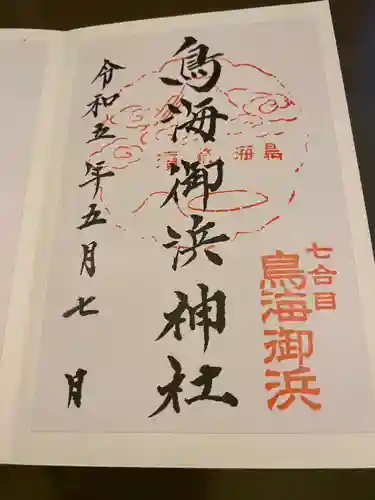 七合目
鳥海御浜
鳥海御浜神社
令和五年五月七月